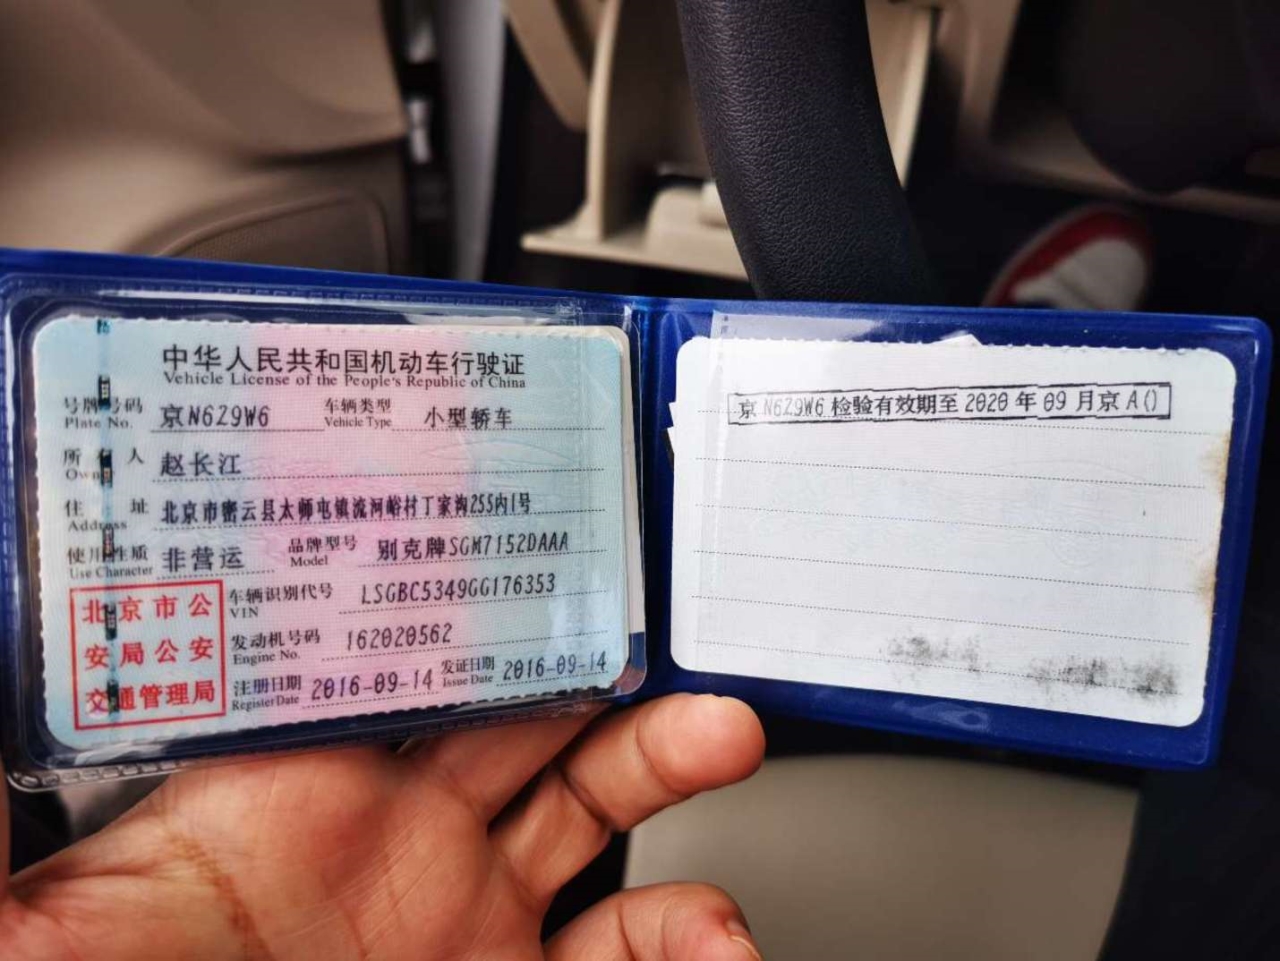 中华人民共和国机动车行驶证
Vehicle License of the People's Republic of China
号牌号码 京N6Z9W6 车辆类型 小型轿车
Plate No. Vehicle Type
所有人 赵长江
Owner
住址 北京市密云县太师屯镇流河峪村丁家沟255内1号
Address
使用性质 非营运 品牌型号 别克牌SGM7152DAAA
Use Character Model
车辆识别代号 LSGBC5349GG176353
VIN
发动机号码 162020562
Engine No.
注册日期 2016-09-14 发证日期 2016-09-14
Register Date Issue Date
北京市公
安局公安
交通管理局
京N6Z9W6 检验有效期至2020年09月京A()